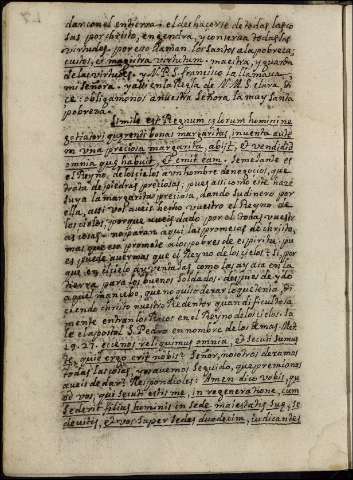 dar con el entierro: el dechacerse de todas las co
sas por christo, engendra, y conserva todas las
virtudes. por eso llaman los santos a la pobreza;
custos, et magistra virtutum. maestra, y guarda
de las virtudes. y N. P. S. francisco la llamava
mi señora. y assi en la Regla de N. M. S. clara, di
ce: obligamonos a nuestra Señora la muy santa
pobreza.
Simile est Regnum cælorum homini ne
gotiatori quærenti bonas margaritas, inventa aute
m una preciosa margarita, abijt, et vendidit
omnia quæ habuit, et emit eam. Semejante es
el Reyno de los cielos a un hombre de negocios, que
trata de piedras preciosas; pues assi como este haze
suya la margarita preciosa, dando su dinero por
ella, assi vos aveis hecho vuestro el Reyno de
los cielos, porque aveis dado por el todas vuestr
as cosas. no paran aqui las promesas de christo,
mas que esa promete a los pobres de espiritu. pu
es puede aver mas que el Reyno de los cielos? si, por
que en el cielo ay ventajas, como las ay aca en la
tierra para los buenos soldados. despues de ydo
a quel mancebo, que no quiso dexar lo que tenia, di
ciendo christo nuestro Redentor quan dificultosa
mente entran los Ricos en el Reyno de los cielos. Sa
le el apostol S. Pedro en nombre de los demas. Mat
19. 27. ecce nos reliquimus omnia, et secuti sumus
te, quid ergo erit nobis? Señor, nosotros dexamos
todas las cosas, y os avemos seguido, que premio nos
aveis de dar? Respondioles: Amen dico vobis, qu
od vos, qui secuti estis me, in regeneratione, cum
sederit filius hominis in sede maiestatis suæ, se
debitis, et vos super sedes duodecim, iudicantes